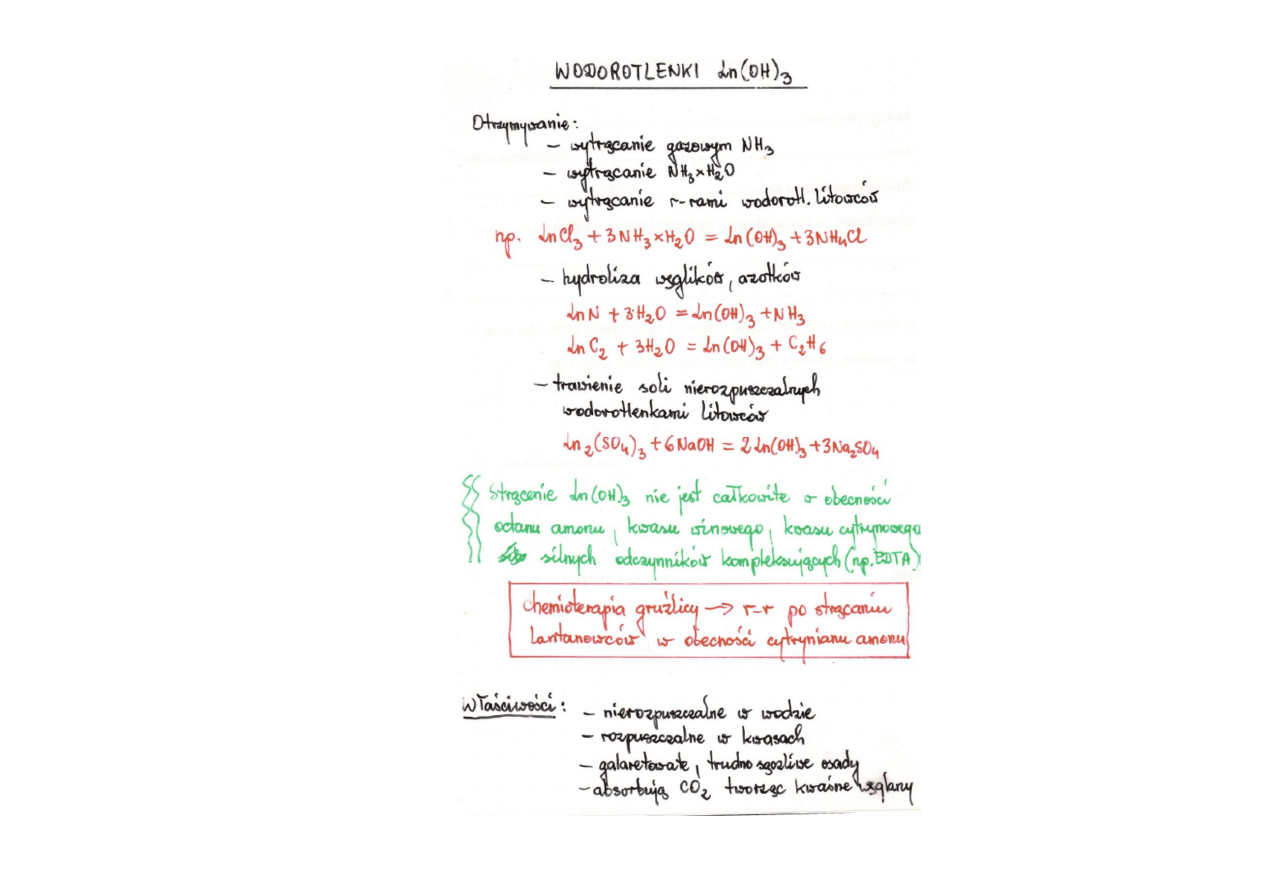 WODOROTLENKI Ln(OH)₃
Otrzymywanie:
– wytrącanie gazowym NH₃
– wytrącanie NH₃×H₂O
– wytrącanie r-rami wodorotl. litowców
np. LnCl₃ + 3NH₃×H₂O = Ln(OH)₃ + 3NH₄Cl
– hydroliza węglików, azotków
LnN + 3H₂O = Ln(OH)₃ + NH₃
LnC₂ + 3H₂O = Ln(OH)₃ + C₂H₆
– trawienie soli nierozpuszczalnych
wodorotlenkami litowców
Ln₂(SO₄)₃ + 6NaOH = 2Ln(OH)₃ + 3Na₂SO₄
Strącenie Ln(OH)₃ nie jest całkowite w obecności
octanu amonu, kwasu winowego, kwasu cytrynowego
silnych odczynników kompleksujących (np. EDTA)
chemioterapia gruźlicy → r-r po strącaniu
lantanowców w obecności cytrynianu amonu
Właściwości:
– nierozpuszczalne w wodzie
– rozpuszczalne w kwasach
– galaretowate, trudno sączliwe osady
– absorbują CO₂ tworząc kwaśne węglany